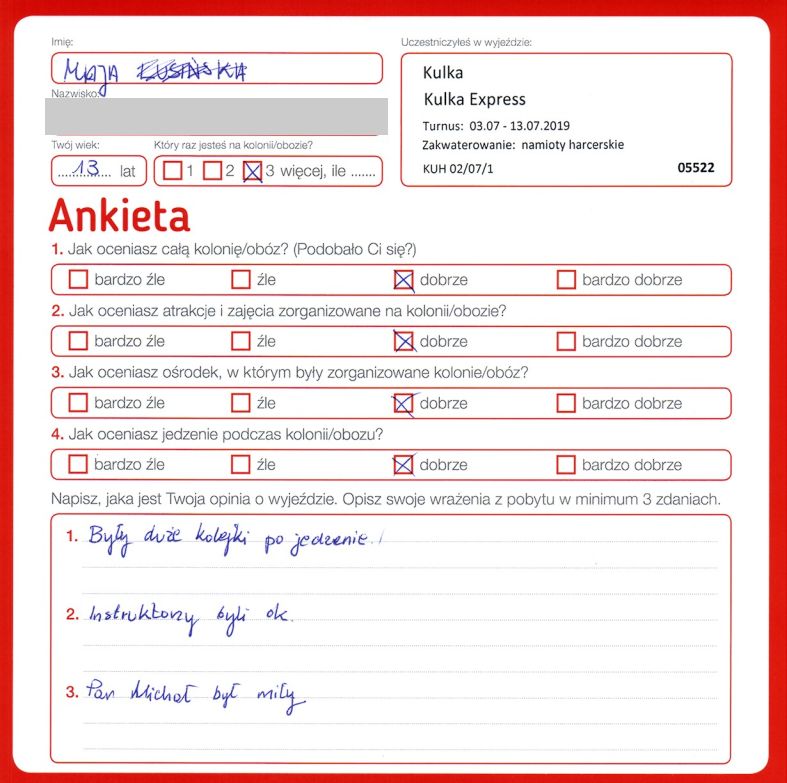 Imię:
Maja
Nazwisko:
Twój wiek:
13 lat
Który raz jesteś na kolonii/obozie?
1 2 3 więcej, ile .......
Uczestniczyłeś w wyjeździe:
Kulka
Kulka Express
Turnus: 03.07 - 13.07.2019
Zakwaterowanie: namioty harcerskie
KUH 02/07/1 05522
Ankieta
1. Jak oceniasz całą kolonię/obóz? (Podobało Ci się?)
bardzo źle źle dobrze bardzo dobrze
2. Jak oceniasz atrakcje i zajęcia zorganizowane na kolonii/obozie?
bardzo źle źle dobrze bardzo dobrze
3. Jak oceniasz ośrodek, w którym były zorganizowane kolonie/obóz?
bardzo źle źle dobrze bardzo dobrze
4. Jak oceniasz jedzenie podczas kolonii/obozu?
bardzo źle źle dobrze bardzo dobrze
Napisz, jaka jest Twoja opinia o wyjeździe. Opisz swoje wrażenia z pobytu w minimum 3 zdaniach.
1. Były duże kolejki po jedzenie.
2. Instruktorzy byli ok.
3. Pan Michał był miły